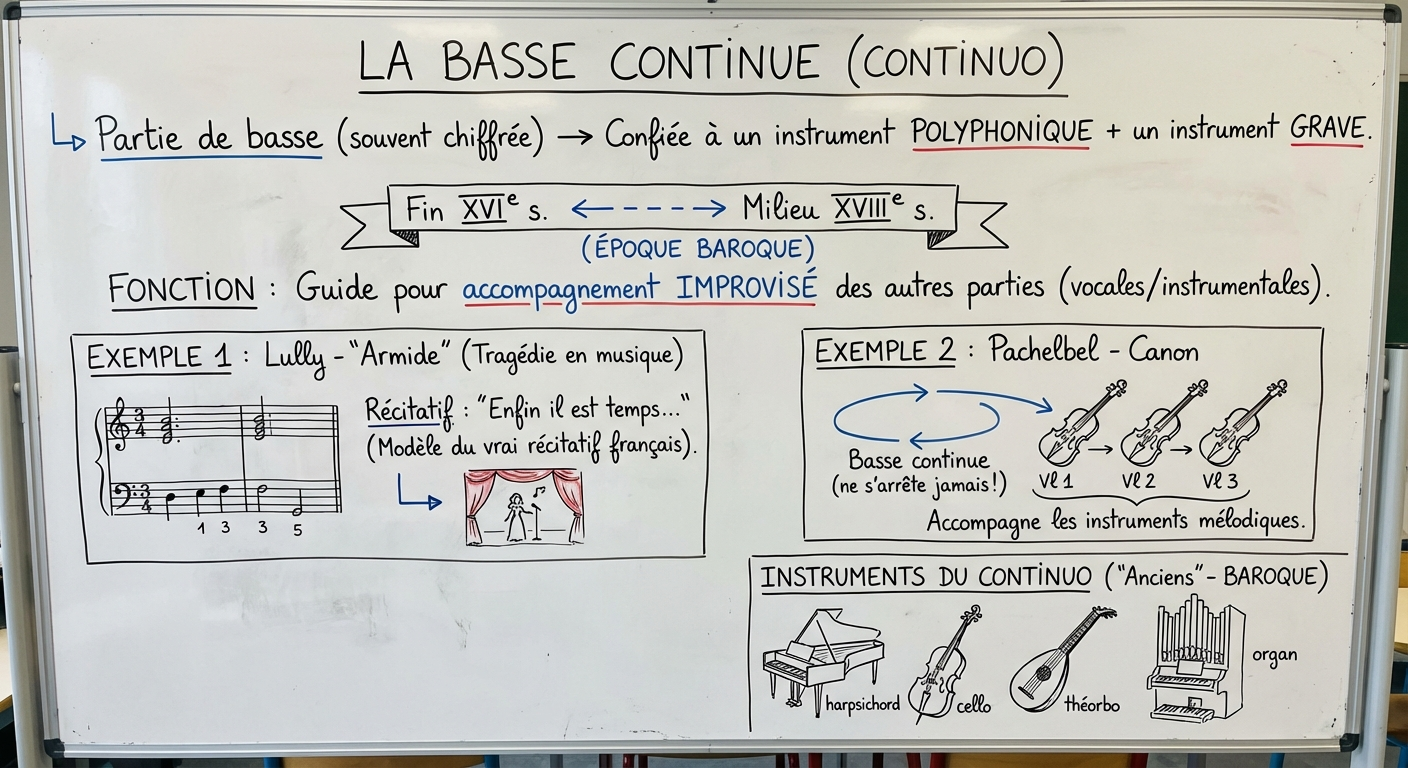 LA BASSE CONTINUE (CONTINUO)
Partie de basse (souvent chiffrée) → Confiée à un instrument POLYPHONIQUE + un instrument GRAVE.
Fin XVIe s. ←---→ Milieu XVIIIe s.
(ÉPOQUE BAROQUE)
FONCTION : Guide pour accompagnement IMPROVISÉ des autres parties (vocales/instrumentales).
EXEMPLE 1 : Lully - "Armide" (Tragédie en musique)
3 4
3 4
1 3 3 5
Récitatif : "Enfin il est temps..."
(Modèle du vrai récitatif français).
EXEMPLE 2 : Pachelbel - Canon
Basse continue
(ne s'arrête jamais!)
Vl 1 → Vl 2 → Vl 3
Accompagne les instruments mélodiques.
INSTRUMENTS DU CONTINUO ("Anciens" - BAROQUE)
harpsichord
cello
théorbo
organ